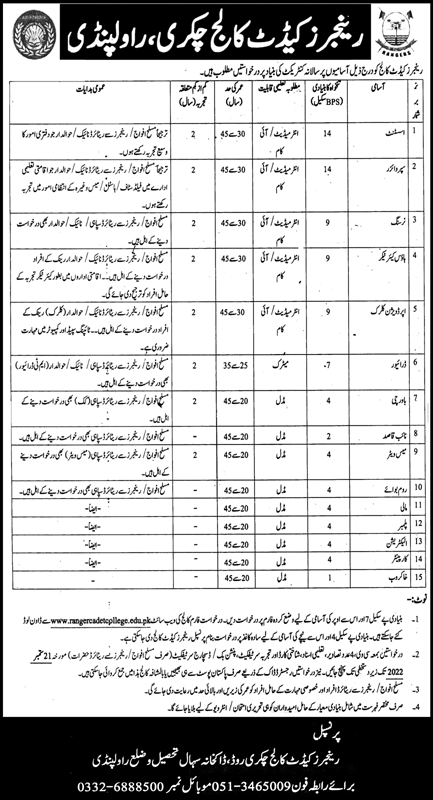 رینجرز کیڈٹ کالج چکری، راولپنڈی
RANGERS
رینجرز کیڈٹ کالج کو درج ذیل آسامیوں پر سالانہ کنٹریکٹ کی بنیاد پر درخواستیں مطلوب ہیں۔
نمبر شمار آسامی تنخواہ کا بنیادی (BPS سکیل) مطلوبہ تعلیمی قابلیت عمر کی حد (سال) کم از کم متعلقہ تجربہ (سال) عمومی ہدایات
1 اسسٹنٹ 14 انٹرمیڈیٹ/ آئی کام 30 سے 45 2 ترجیحاً مسلح افواج/ رینجرز سے ریٹائرڈ نائیک/ حوالدار جو دفتری امور کا وسیع تجربہ رکھتے ہوں۔
2 سپروائزر 14 انٹرمیڈیٹ/ آئی کام 30 سے 45 2 ترجیحاً مسلح افواج/ رینجرز سے ریٹائرڈ نائیک/ حوالدار جو اقامتی تعلیمی ادارے میں فیلڈ سٹاف/ ہاسٹل/ میس وغیرہ کے انتظامی امور میں تجربہ رکھتے ہوں۔
3 نرسنگ 9 انٹرمیڈیٹ/ آئی کام 30 سے 45 2 مسلح افواج/ رینجرز سے ریٹائرڈ سپاہی/ نائیک/ حوالدار بھی درخواست دینے کے اہل ہیں۔
4 ہاؤس کیئر ٹیکر 9 انٹرمیڈیٹ/ آئی کام 30 سے 45 2 مسلح افواج/ رینجرز سے ریٹائرڈ نائیک/ حوالدار رینک کے افراد درخواست دینے کے اہل ہیں۔۔ اقامتی اداروں میں بطور کیئر ٹیکر تجربہ کے حامل افراد کو ترجیح دی جائے گی۔
5 اپر ڈویژن کلرک 9 انٹرمیڈیٹ/ آئی کام 30 سے 45 2 مسلح افواج/ رینجرز سے ریٹائرڈ حوالدار (کلرک) رینک کے افراد درخواست دینے کے اہل ہیں۔۔ ٹائپنگ سپیڈ اور کمپیوٹر میں مہارت ضروری ہے۔
6 ڈرائیور 7- میٹرک 25 سے 35 2 مسلح افواج/ رینجرز سے ریٹائرڈ سپاہی/ نائیک/ حوالدار (ایم ٹی ڈرائیور) بھی درخواست دینے کے اہل ہیں۔
7 باورچی 4 مڈل 20 سے 45 2 مسلح افواج/ رینجرز سے ریٹائرڈ سپاہی (کک) بھی درخواست دینے کے اہل ہیں۔
8 نائب قاصد 2 مڈل 20 سے 45 - مسلح افواج/ رینجرز سے ریٹائرڈ سپاہی بھی درخواست دینے کے اہل ہیں۔
9 میس ویٹر 4 مڈل 20 سے 45 2 مسلح افواج/ رینجرز سے ریٹائرڈ سپاہی (میس ویٹر) بھی درخواست دینے کے اہل ہیں۔
10 روم بوائے 4 مڈل 20 سے 45 - مسلح افواج/ رینجرز سے ریٹائرڈ سپاہی بھی درخواست دینے کے اہل ہیں۔
11 مالی 4 مڈل 20 سے 45 - -ایضاً-
12 پلمبر 4 مڈل 20 سے 45 - -ایضاً-
13 الیکٹریشن 4 مڈل 20 سے 45 - -ایضاً-
14 کارپینٹر 4 مڈل 20 سے 45 - -ایضاً-
15 خاکروب 1 مڈل 20 سے 45 - -
1۔ بنیادی پے سکیل 7 اور اس سے اوپر کی آسامی کے لیے وضع کردہ فارم پر درخواست دیں۔ درخواست فارم کالج کی ویب سائٹ www.rangercadetcollege.edu.pk سے ڈاؤن لوڈ
کریں۔ بنیادی پے سکیل 4 اور اس سے نیچے کی آسامی کے لیے سادہ کاغذ پر درخواست بنام پرنسپل رینجرز کیڈٹ کالج دی جا سکتی ہے۔
2۔ درخواستیں بمعہ سی وی، 4 عدد تصاویر، تعلیمی اسناد، شناختی کارڈ اور تجربہ سرٹیفکیٹ، پنشن بک/ ڈسچارج سرٹیفکیٹ (صرف مسلح افواج/ رینجرز سے ریٹائرڈ حضرات) مورخہ 21 ستمبر
2022 تک زیر دستخطی تک پہنچ جائیں۔ نیز درخواستیں رجسٹرڈ ڈاک کے ذریعے صرف پاکستان پوسٹ سے ہی بھیجیں یا بالمشافہ کالج ہذا میں جمع کروائی جا سکتی ہیں۔
3۔ مسلح افواج/ رینجرز سے ریٹائرڈ افراد اور خصوصی مہارت کے حامل افراد کو عمر کی زیریں اور بالائی حد میں رعایت دی جائے گی۔
4۔ صرف مختصر فہرست میں شامل بنیادی معیار کے حامل امیدواران کو ہی تحریری امتحان/ انٹرویو کے لیے بلایا جائے گا۔
پرنسپل
رینجرز کیڈٹ کالج چکری روڈ، ڈاکخانہ سہال تحصیل و ضلع راولپنڈی
برائے رابطہ فون 051-3465009 موبائل نمبر 0332-6888500